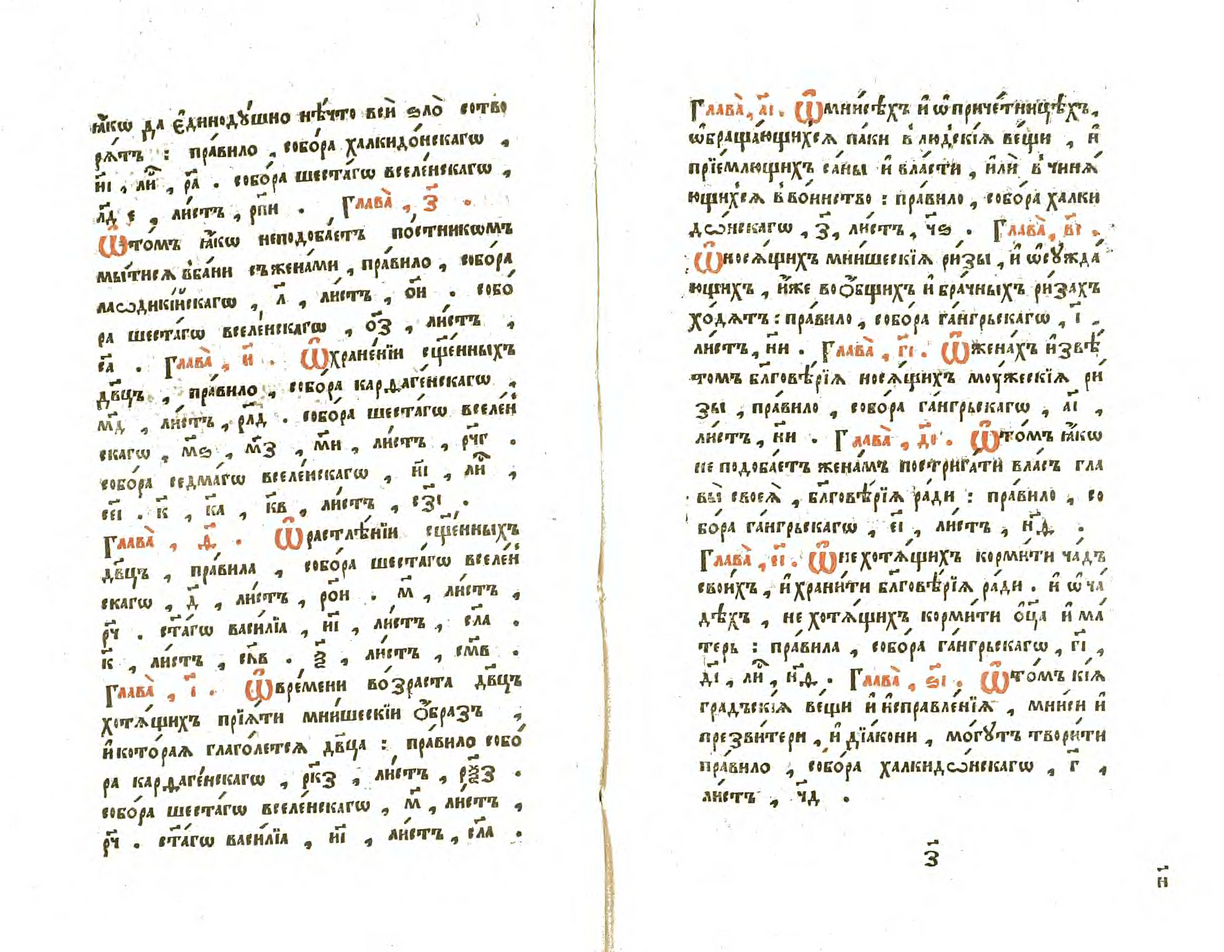 ꙗ҆́кѡ да є҆динодꙋ́шно нѣ́что всѝ ѕло̀ сотво
рѧ́тъ : пра́вило , собо́ра халкидо́нскагѡ ,
и҃і , ли́ , р҃а . собо́ра шеста́гѡ вселе́нскагѡ ,
л҃д є , ли́стъ , рп҃и . Глава̀ , з҃ .
Ѿто́мъ ꙗ҆́кѡ неподоба́етъ по́стникомъ
мы́тисѧ вба́ни съжена́ми , пра́вило , собо́ра
лаѡдикі́йскагѡ , л҃ , ли́стъ , о҃и . собо́
ра шеста́гѡ вселе́нскагѡ , о҃з , ли́стъ ,
с҃а . Глава̀ , и҃ . Ѿхране́нїи сщ҃е́нныхъ
дв҃цъ , пра́вило , собо́ра карѳаге́нскагѡ ,
м҃д , ли́стъ , рл҃д . собо́ра шеста́гѡ вселе́н
скагѡ , м҃ѕ , м҃з , м҃и , ли́стъ , рч҃г .
собо́ра седма́гѡ вселе́нскагѡ , и҃і , ли́ ,
се҃і . к҃ , к҃а , к҃в , ли́стъ , сз҃і .
Глава̀ , ѳ҃ . Ѿрастлѣ́нїи сщ҃е́нныхъ
дв҃цъ , пра́вила , собо́ра шеста́гѡ вселе́н
скагѡ , д҃ , ли́стъ , ро҃и . м҃ , ли́стъ ,
р҃ч . ст҃а́гѡ васи́лїа , и҃і , ли́стъ , сл҃а .
к҃ , ли́стъ , сл҃в . ѯ҃ , ли́стъ , см҃в .
Глава̀ , і҃ . Ѿвре́мени во́зраста дв҃цъ
хотѧ́щихъ прїѧ́ти мни́шескїи о҆́бразъ ,
и҆кото́раѧ глаго́летсѧ дв҃ца : пра́вило собо́
ра карѳаге́нскагѡ , рк҃з , ли́стъ , рѯ҃з .
собо́ра шеста́гѡ вселе́нскагѡ , м҃ , ли́стъ ,
р҃ч . ст҃а́гѡ васи́лїа , и҃і , ли́стъ , сл҃а .
Глава̀ , а҃і . Ѿмни́сѣхъ и҆ ѡ҆приче́тницѣхъ ,
ѡ҆браща́ющихсѧ па́ки в людскі́ѧ ве́щи , и҆
прїе́млющихъ са́ны и҆ вла́сти , и҆лѝ в чинѧ́
ющихсѧ в во́инство : пра́вило , собо́ра халки
дѡ́нскагѡ , з҃ , ли́стъ , ч҃ѕ . Глава̀ , в҃і .
Ѿнося́щихъ мни́шескїѧ ри́зы , и҆ ѡ҆сꙋжда́
ющихъ , и҆́же во о҆́бщихъ и҆ бра́чныхъ ри́зах
хо́дѧтъ : пра́вило , собо́ра га́нгрьскагѡ , і҃ ,
ли́стъ , н҃и . Глава̀ , г҃і . Ѿжена́хъ и҆звѣ́
томъ бл҃говѣ́рїѧ носѧ́щихъ моу́жескїѧ ри́
зы , пра́вило , собо́ра га́нгрьскагѡ , а҃і ,
ли́стъ , н҃и . Глава̀ , д҃і . Ѿто́мъ ꙗ҆́кѡ
не подоба́етъ жена́мъ постриѓати вла́съ гла
вы̀ своеѧ̀ , бл҃говѣ́рїѧ ра́ди : пра́вило , со
бо́ра га́нгрьскагѡ , е҃і , ли́стъ , н҃ѳ .
Глава̀ , е҃і . Ѿнехотѧ́щихъ корми́ти ча́дъ
свои́хъ , и҆ храни́ти бл҃говѣ́рїѧ ра́ди . и҆ ѡ҆ ча́
дѣхъ , не хотѧ́щихъ корми́ти о҆ц҃а̀ и҆ ма́
терь : пра́вила , собо́ра га́нгрьскагѡ , г҃і ,
д҃і , ли́ , н҃ѳ . Глава̀ , ѕ҃і . Ѿто́мъ кі́ѧ
гра́дъскїѧ ве́щи и҆ и҆справле́нїѧ , мни́си и҆
презви́тери , и҆ дїа́кони , мо́гꙋтъ твори́ти
пра́вило , собо́ра халкидѡ́нскагѡ , г҃ ,
ли́стъ , ч҃д .
з҃
н҃